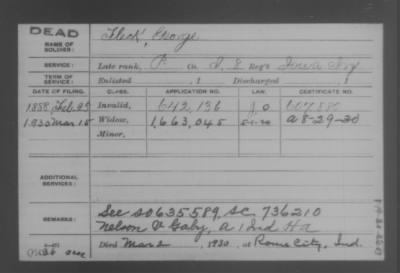 DEAD
NAME OF SOLDIER: Fleck, George
SERVICE: Late rank, P Co. Reg't Iowa Inf
TERM OF SERVICE: Enlisted , 1 Discharged , 1
DATE OF FILING. CLASS. APPLICATION NO. LAW. CERTIFICATE NO.
1888 Feb. Invalid, 642,136
1930 Mar 15 Widow, 1,663,045 5-1-20 A 8-29-30
Minor,
ADDITIONAL SERVICES:
REMARKS: See SO635589, SC. 736210
Nelson V Gaby, A 1 Ind H a
Died Mar 2, 1930, at Rome City, Ind.